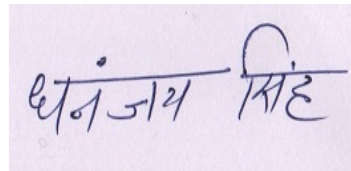 धनंजय सिंह